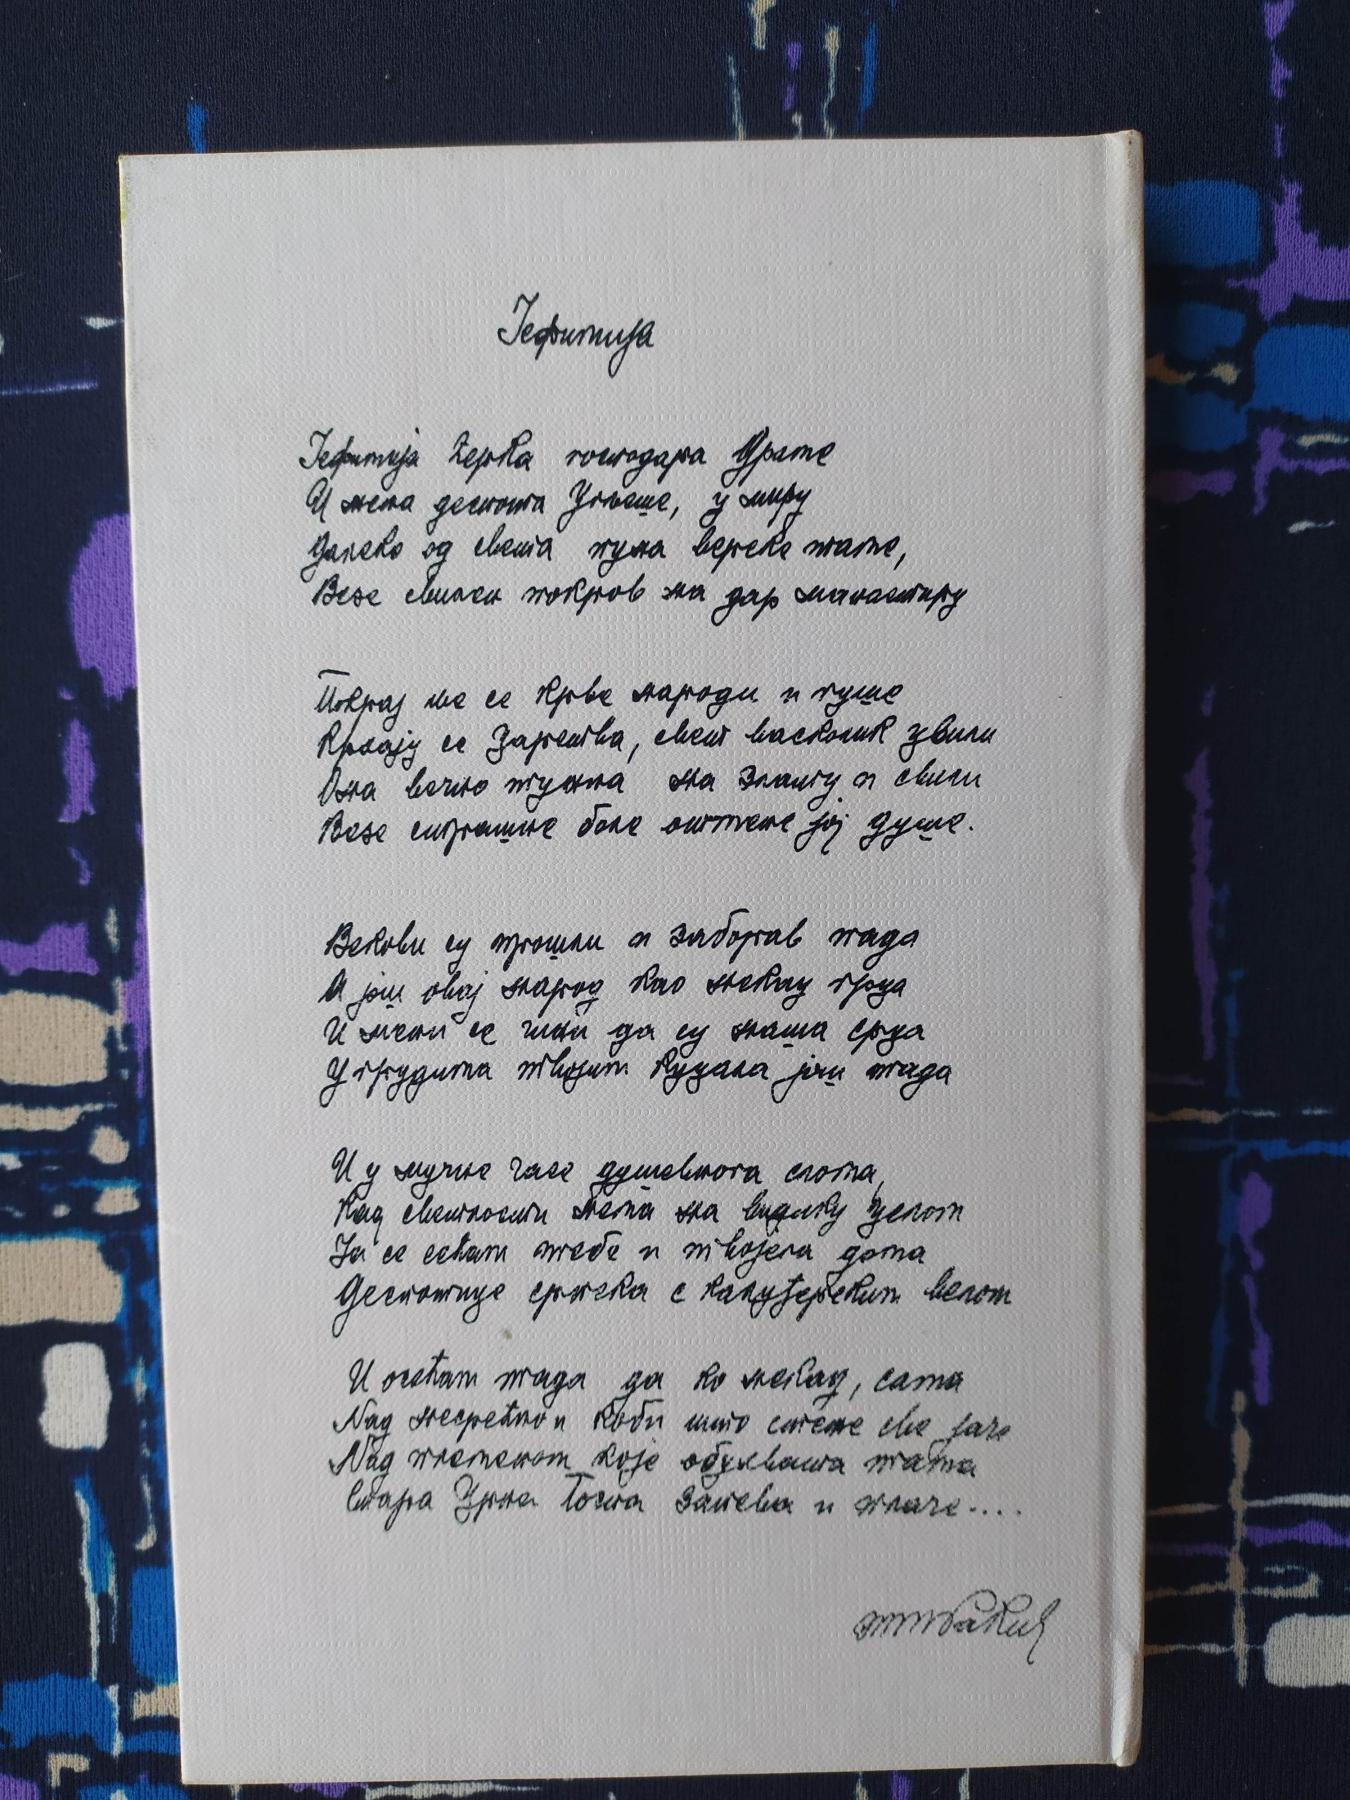 Јефимија
Јефимија ћерка господара Драме
И жена деспота Угљеше, у миру
Далеко од света пуна верске таме,
Везе свилен покров на дар манастиру
Покрај ње се крве народи и гуше
Пропадају се царства, свет васколик цвили
Она вечно тужна на злату и свили
Везе страшне боле отмене јој душе.
Векови су прошли и заборав пада
А још овај народ као некад грца
И мени се чини да су наша срца
У грудима твојим куцала још тада
И у мучне часе душевнога слома,
Кад светлости нема на видику целом
Ја се сећам тебе и твојега дома
Деспотице српска с калуђерским велом
И осећам тада да ко некад, сама
Над несрећном коби што стеже све јаче
Над племеном које обухвата тама
Стара Црна Госпа запева и плаче....
М.М.Ракић